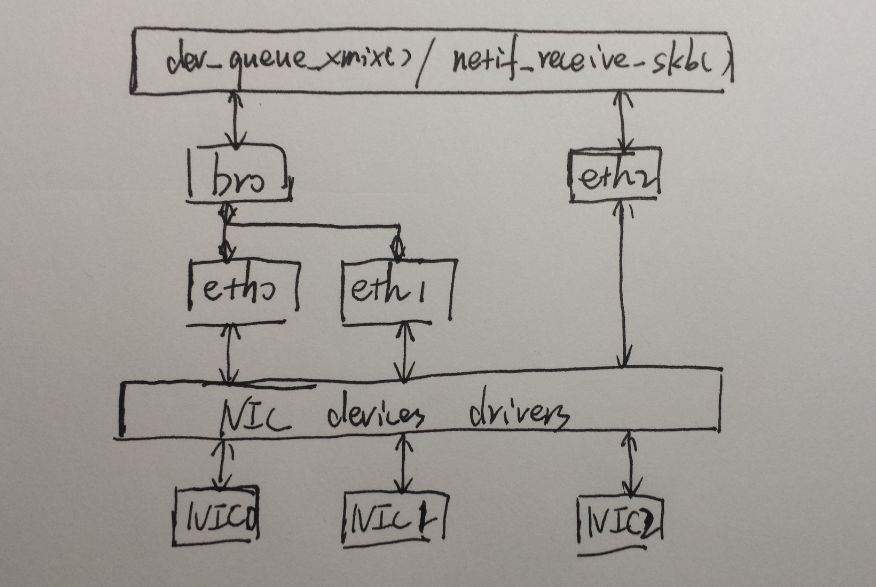 dev_queue_xmix() / netif_receive_skb()
br0
eth2
eth0
eth1
NIC devices drivers
NIC0
NIC1
NIC2